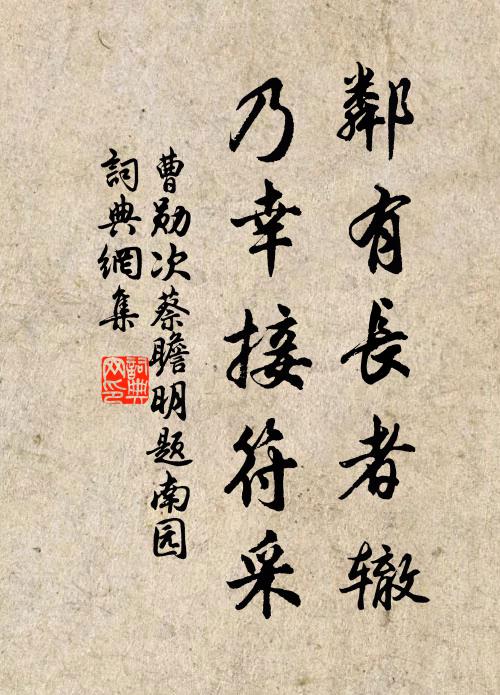 鄰有長者辙
乃幸接符采
曹勋次蔡瞻明题南园
詞典網集
詞典网印